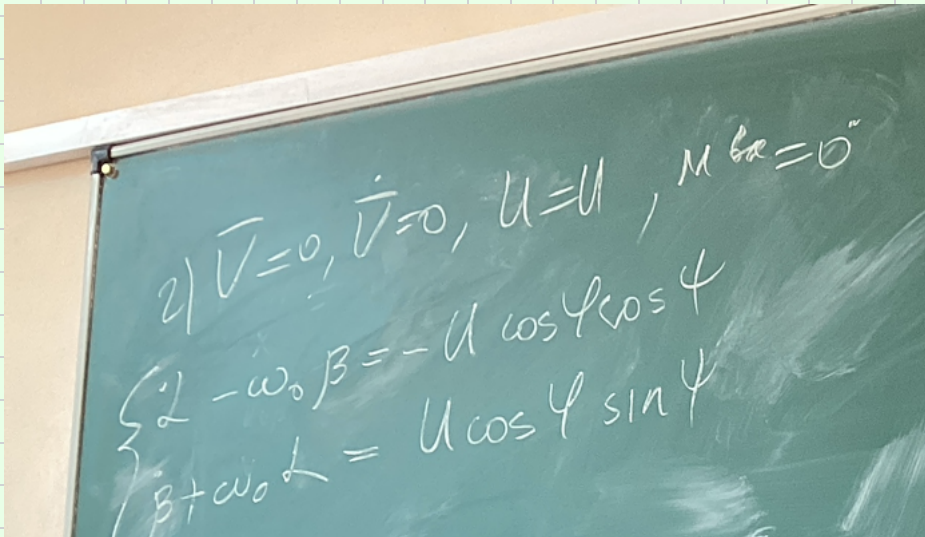 2) V̄=0, V̄̇=0, U=U, M^вх=0"
{ α̇ - ω₀β = -U cosφ cosψ
β̇ + ω₀α = U cosφ sinψ